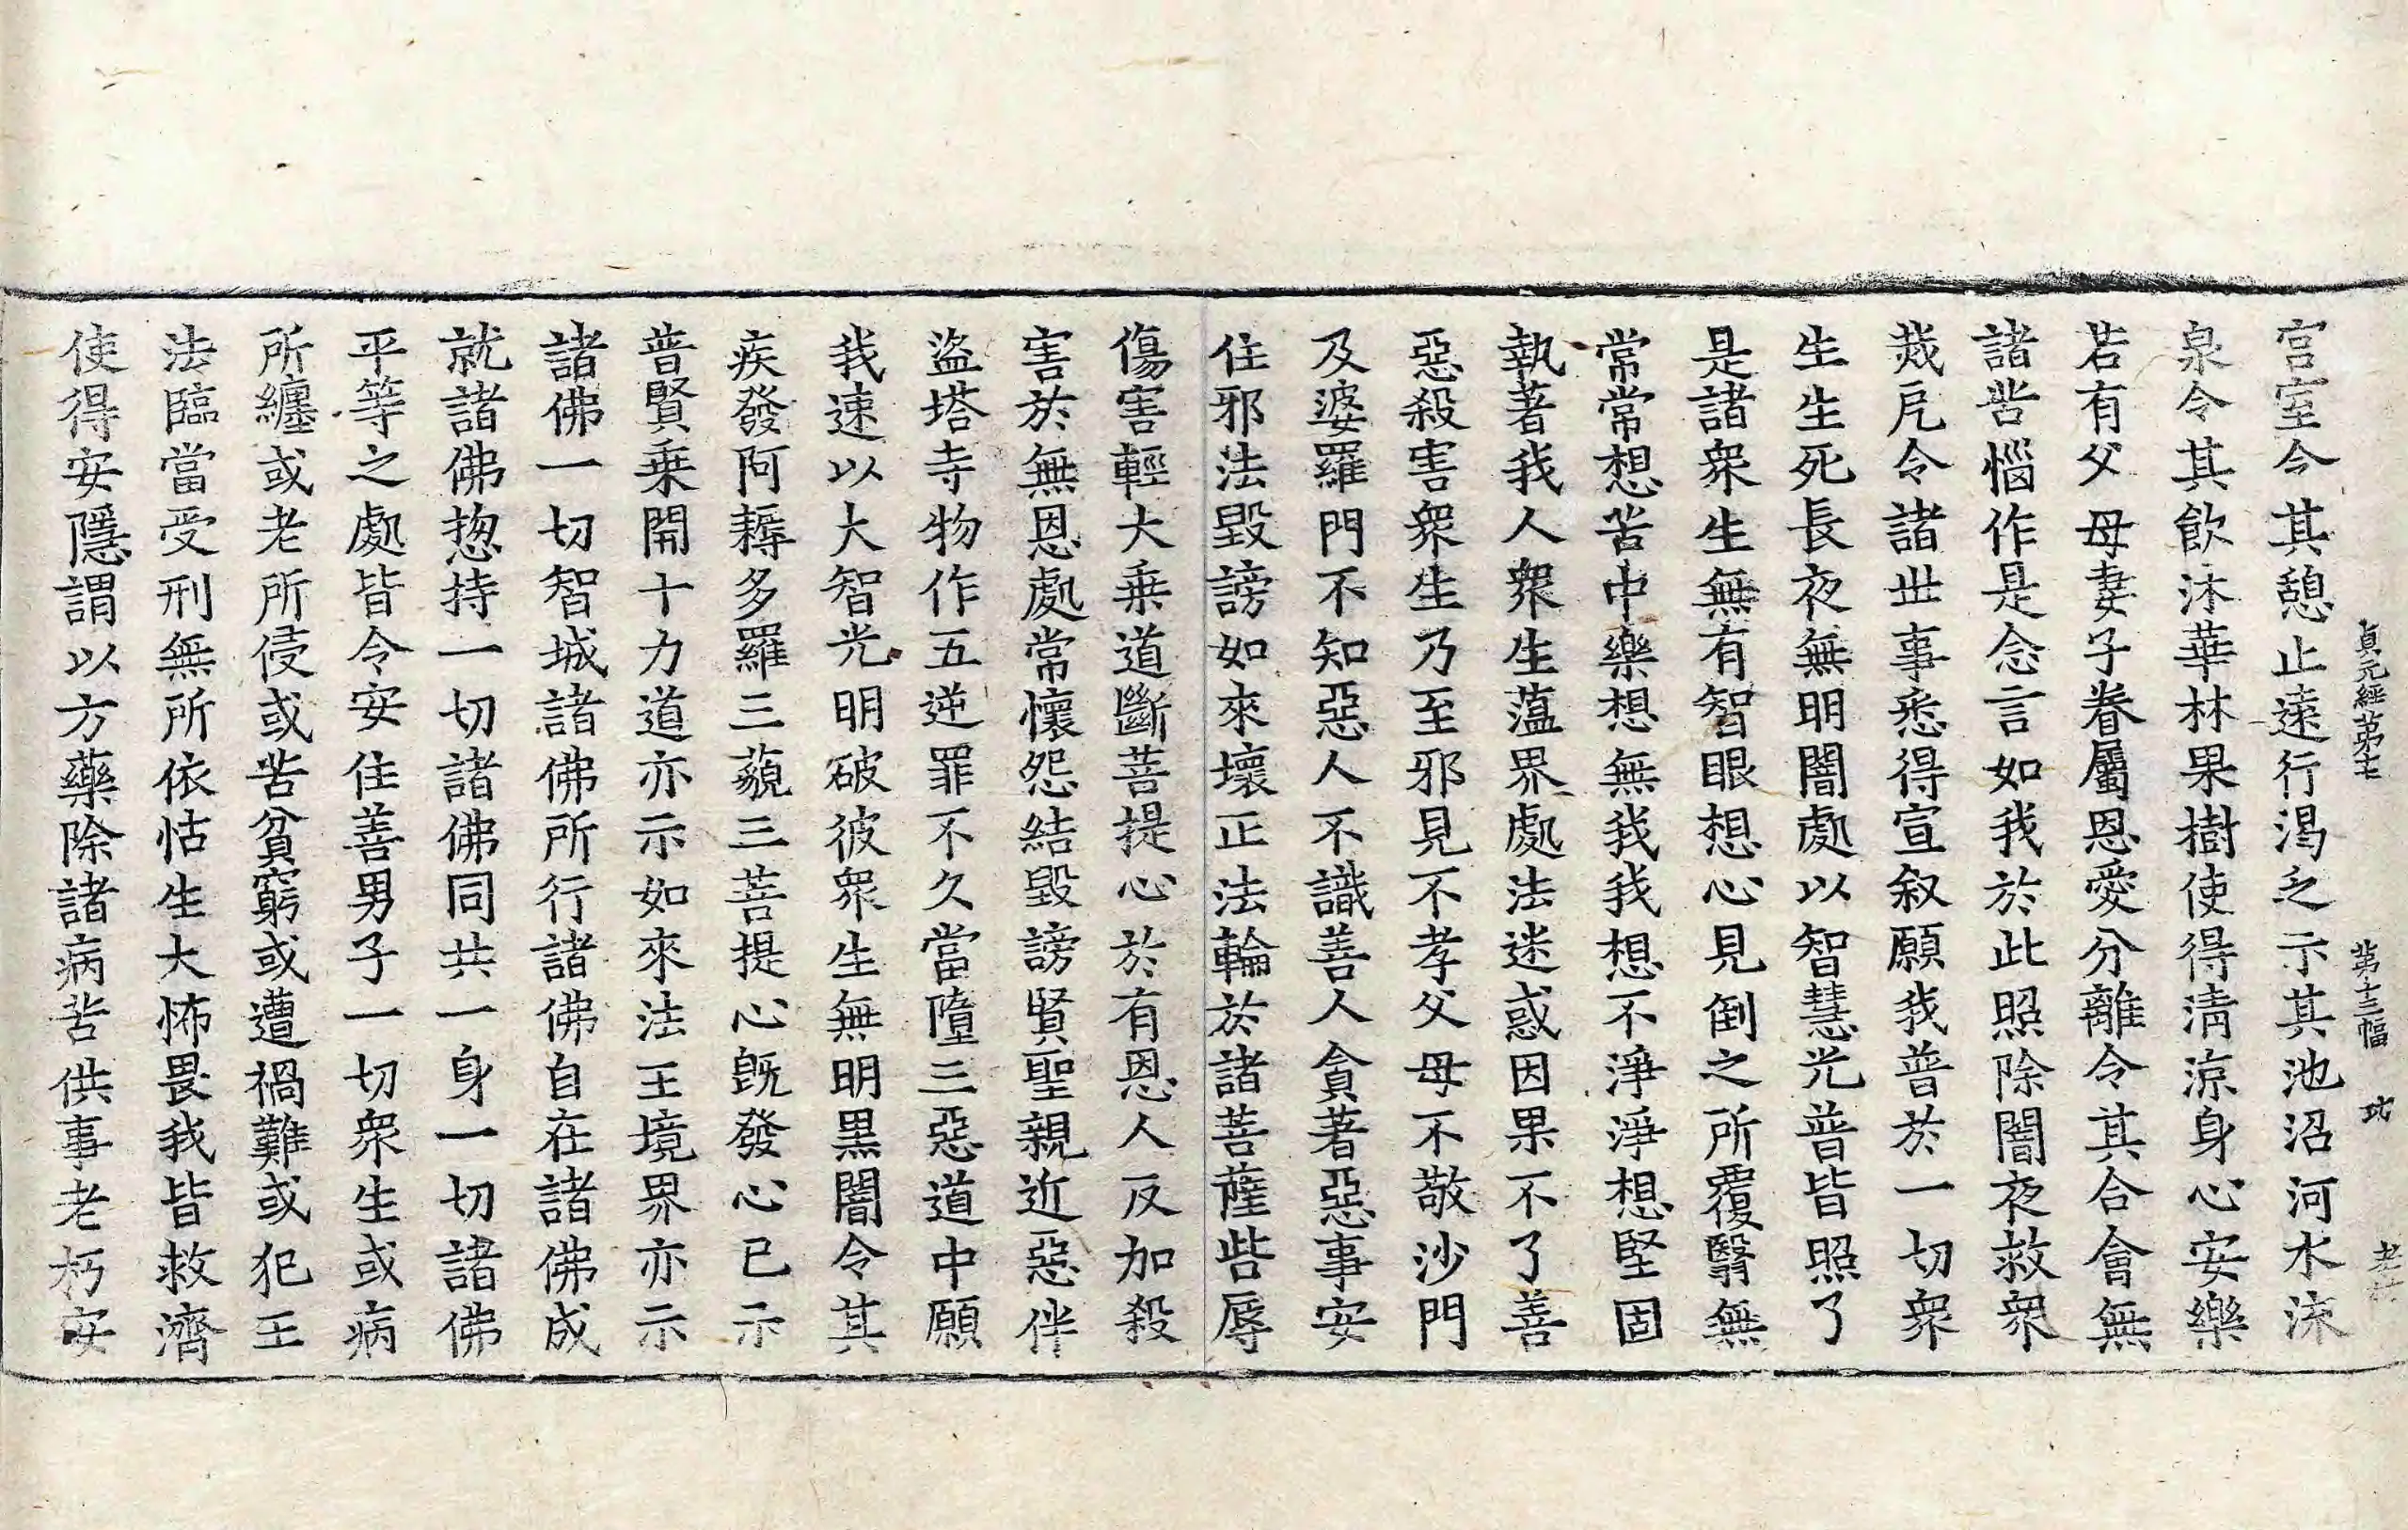 貞元經第七　第十三幅　功
宮室令其憩止遠行渴乏示其池沼河水沫
泉令其飲沐華林果樹使得清涼身心安樂
若有父母妻子眷屬恩愛分離令其合會無
諸苦惱作是念言如我於此照除闇夜救衆
烖戹令諸世事悉得宣叙願我普於一切衆
生生死長夜無明闇處以智慧光普皆照了
是諸衆生無有智眼想心見倒之所覆翳無
常常想苦中樂想無我我想不淨淨想堅固
執著我人衆生蕰界處法迷惑因果不了善
惡殺害衆生乃至邪見不孝父母不敬沙門
及婆羅門不知惡人不識善人貪著惡事安
住邪法毀謗如來壞正法輪於諸菩薩呰辱
傷害輕大乗道斷菩提心於有恩人反加殺
害於無恩處常懷怨結毀謗賢聖親近惡伴
盜塔寺物作五逆罪不久當墮三惡道中願
我速以大智光明破彼衆生無明黒闇令其
疾發阿耨多羅三藐三菩提心旣發心已示
普賢乗開十力道亦示如來法王境界亦示
諸佛一切智城諸佛所行諸佛自在諸佛成
就諸佛揔持一切諸佛同共一身一切諸佛
平等之處皆令安住善男子一切衆生或病
所纏或老所侵或苦貧窮或遭禍難或犯王
法臨當受刑無所依怙生大怖畏我皆救濟
使得安隱謂以方藥除諸病苦供事老朽安